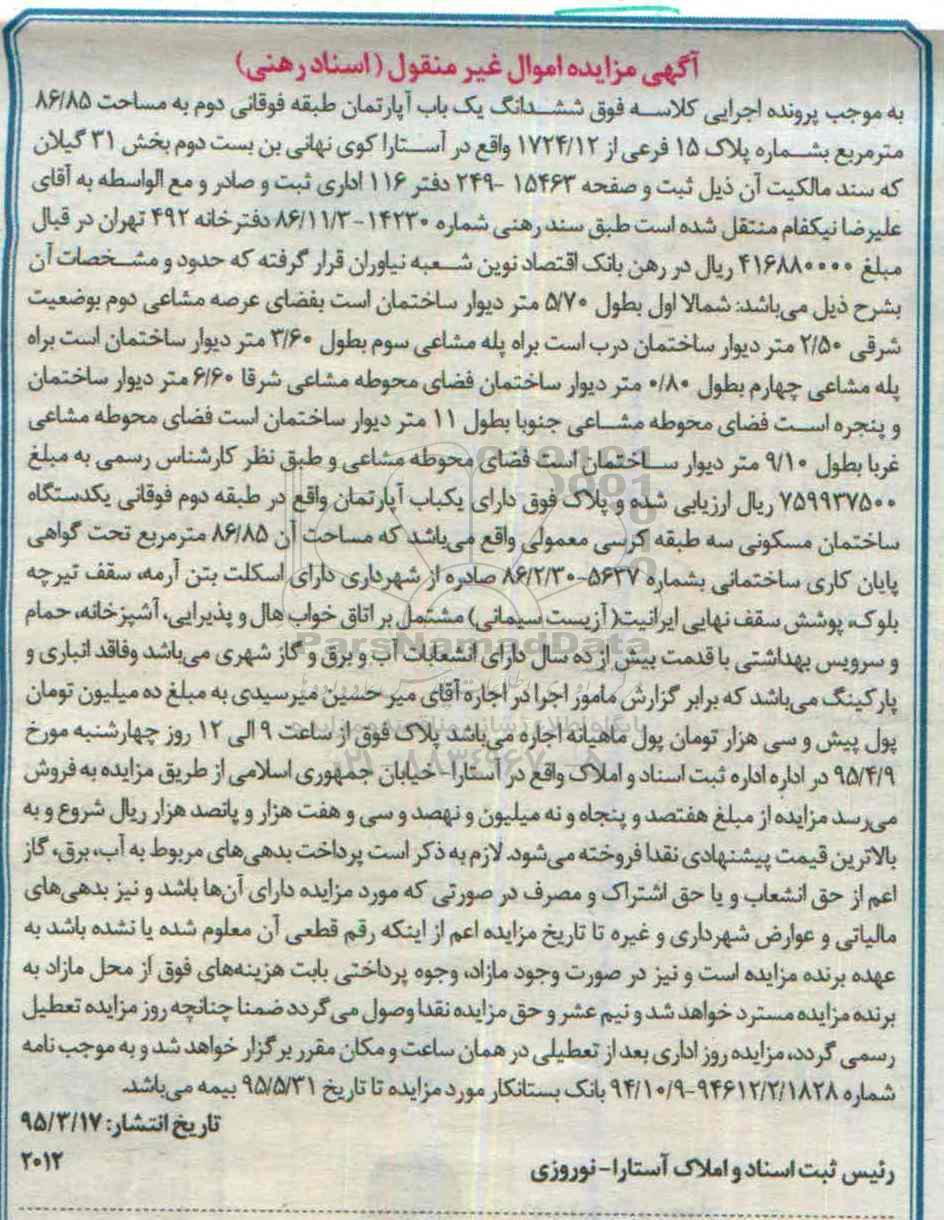 آگهی مزایده اموال غیر منقول (اسناد رهنی)
به موجب پرونده اجرایی کلاسه فوق ششدانگ یک باب آپارتمان طبقه فوقانی دوم به مساحت ۸۶/۸۵
مترمربع بشماره پلاک ۱۵ فرعی از ۱۷۲۴/۱۲ واقع در آستارا کوی نهانی بن بست دوم بخش ۳۱ گیلان
که سند مالکیت آن ذیل ثبت و صفحه ۱۵۴۶۳ -۲۴۹ دفتر ۱۱۶ اداری ثبت و صادر و مع الواسطه به آقای
علیرضا نیکفام منتقل شده است طبق سند رهنی شماره ۱۴۲۳۰-۸۶/۱۱/۳ دفترخانه ۴۹۲ تهران در قبال
مبلغ ۴۱۶۸۸۰۰۰۰ ریال در رهن بانک اقتصاد نوین شعبه نیاوران قرار گرفته که حدود و مشخصات آن
بشرح ذیل می‌باشد: شمالا اول بطول ۵/۷۰ متر دیوار ساختمان است بفضای عرصه مشاعی دوم بوضعیت
شرقی ۲/۵۰ متر دیوار ساختمان درب است براه پله مشاعی سوم بطول ۳/۶۰ متر دیوار ساختمان است براه
پله مشاعی چهارم بطول ۰/۸۰ متر دیوار ساختمان فضای محوطه مشاعی شرقا ۶/۶۰ متر دیوار ساختمان
و پنجره است فضای محوطه مشاعی جنوبا بطول ۱۱ متر دیوار ساختمان است فضای محوطه مشاعی
غربا بطول ۹/۱۰ متر دیوار ساختمان است فضای محوطه مشاعی و طبق نظر کارشناس رسمی به مبلغ
۷۵۹۹۳۷۵۰۰ ریال ارزیابی شده و پلاک فوق دارای یکباب آپارتمان واقع در طبقه دوم فوقانی یکدستگاه
ساختمان مسکونی سه طبقه کرسی معمولی واقع می‌باشد که مساحت آن ۸۶/۸۵ مترمربع تحت گواهی
پایان کاری ساختمانی بشماره ۵۶۳۷-۸۶/۲/۳۰ صادره از شهرداری دارای اسکلت بتن آرمه، سقف تیرچه
بلوک، پوشش سقف نهایی ایرانیت( آزبست سیمانی) مشتمل بر اتاق خواب هال و پذیرایی، آشپزخانه، حمام
و سرویس بهداشتی با قدمت بیش از ده سال دارای انشعابات آب و برق و گاز شهری می‌باشد وفاقد انباری و
پارکینگ می‌باشد که برابر گزارش مامور اجرا در اجاره آقای میر حسین میرسیدی به مبلغ ده میلیون تومان
پول پیش و سی هزار تومان پول ماهیانه اجاره می‌باشد پلاک فوق از ساعت ۹ الی ۱۲ روز چهارشنبه مورخ
۹۵/۴/۹ در اداره اداره ثبت اسناد و املاک واقع در آستارا- خیابان جمهوری اسلامی از طریق مزایده به فروش
می‌رسد مزایده از مبلغ هفتصد و پنجاه و نه میلیون و نهصد و سی و هفت هزار و پانصد هزار ریال شروع و به
بالاترین قیمت پیشنهادی نقدا فروخته می‌شود. لازم به ذکر است پرداخت بدهی‌های مربوط به آب، برق، گاز
اعم از حق انشعاب و یا حق اشتراک و مصرف در صورتی که مورد مزایده دارای آن‌ها باشد و نیز بدهی‌های
مالیاتی و عوارض شهرداری و غیره تا تاریخ مزایده اعم از اینکه رقم قطعی آن معلوم شده یا نشده باشد به
عهده برنده مزایده است و نیز در صورت وجود مازاد، وجوه پرداختی بابت هزینه‌های فوق از محل مازاد به
برنده مزایده مسترد خواهد شد و نیم عشر و حق مزایده نقدا وصول می گردد ضمنا چنانچه روز مزایده تعطیل
رسمی گردد، مزایده روز اداری بعد از تعطیلی در همان ساعت و مکان مقرر برگزار خواهد شد و به موجب نامه
شماره ۹۴۶۱۲/۲/۱۸۲۸-۹۴/۱۰/۹ بانک بستانکار مورد مزایده تا تاریخ ۹۵/۵/۳۱ بیمه می‌باشد.
تاریخ انتشار: ۹۵/۳/۱۷
رئیس ثبت اسناد و املاک آستارا- نوروزی
۲۰۱۲
ParsNamadData